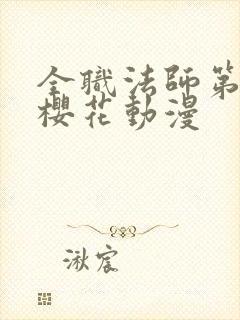 全職法師第
櫻花動漫
湫宸